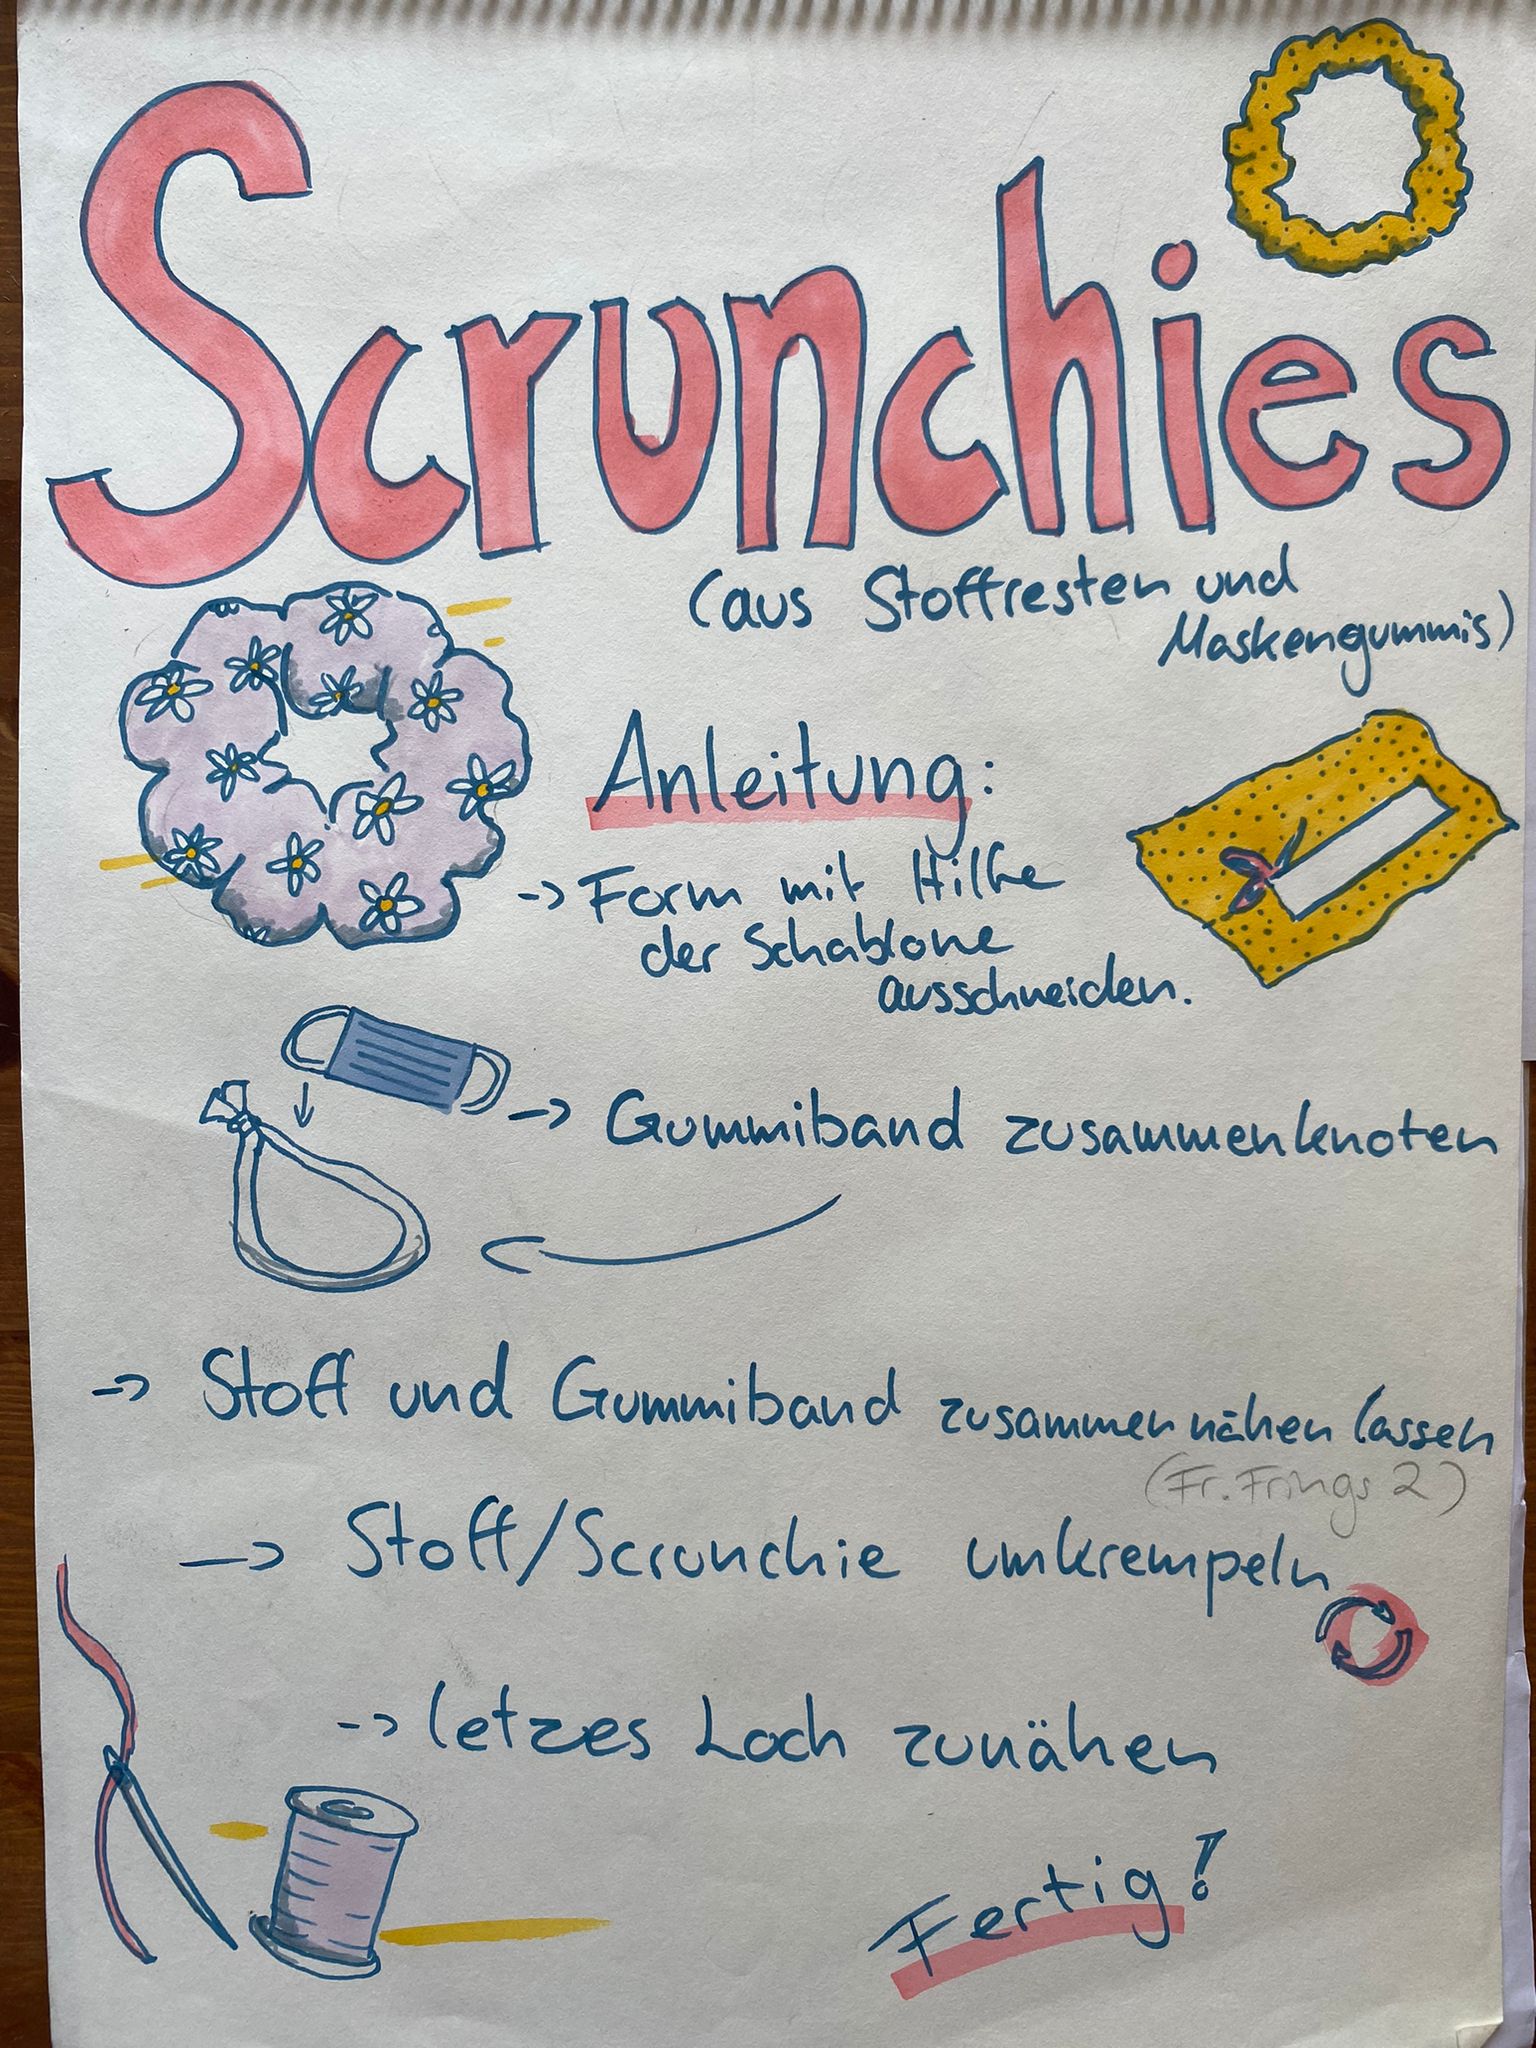 Scrunchies
(aus Stoffresten und
Maskengummis)
Anleitung:
-> Form mit Hilfe
der Schablone
ausschneiden.
-> Gummiband zusammenknoten
-> Stoff und Gummiband zusammennähen lassen
(Fr. Frings 2)
-> Stoff/Scrunchie umkrempeln
-> letzes Loch zunähen
Fertig!